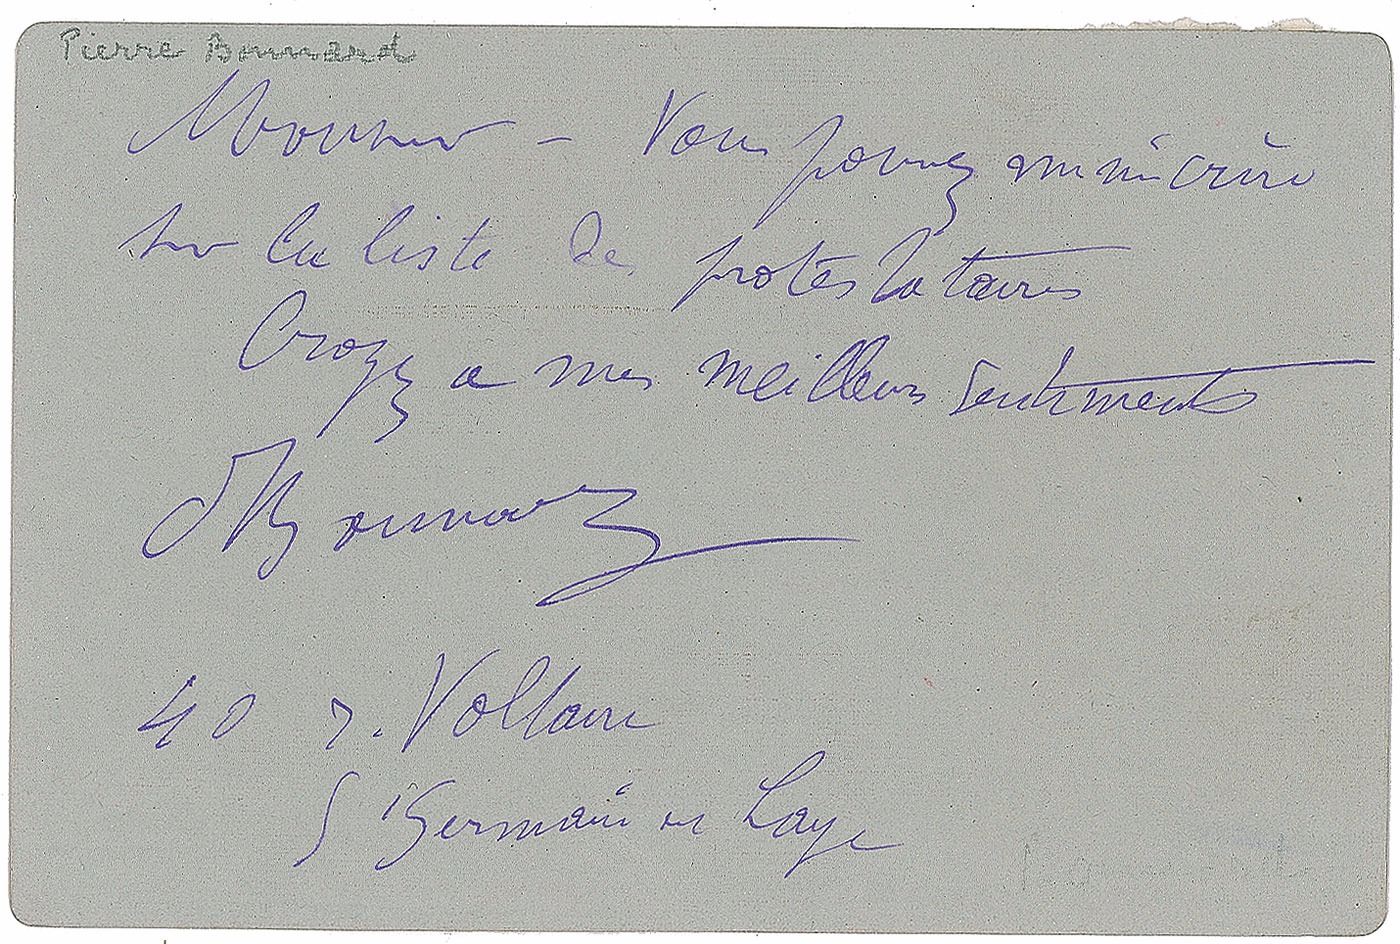 Pierre Bonnard
Monsieur – Vous pouvez m'inscrire
sur la liste des protestataires
Croyez à mes meilleurs sentiments
P Bonnard
40 r. Voltaire
St Germain en Laye